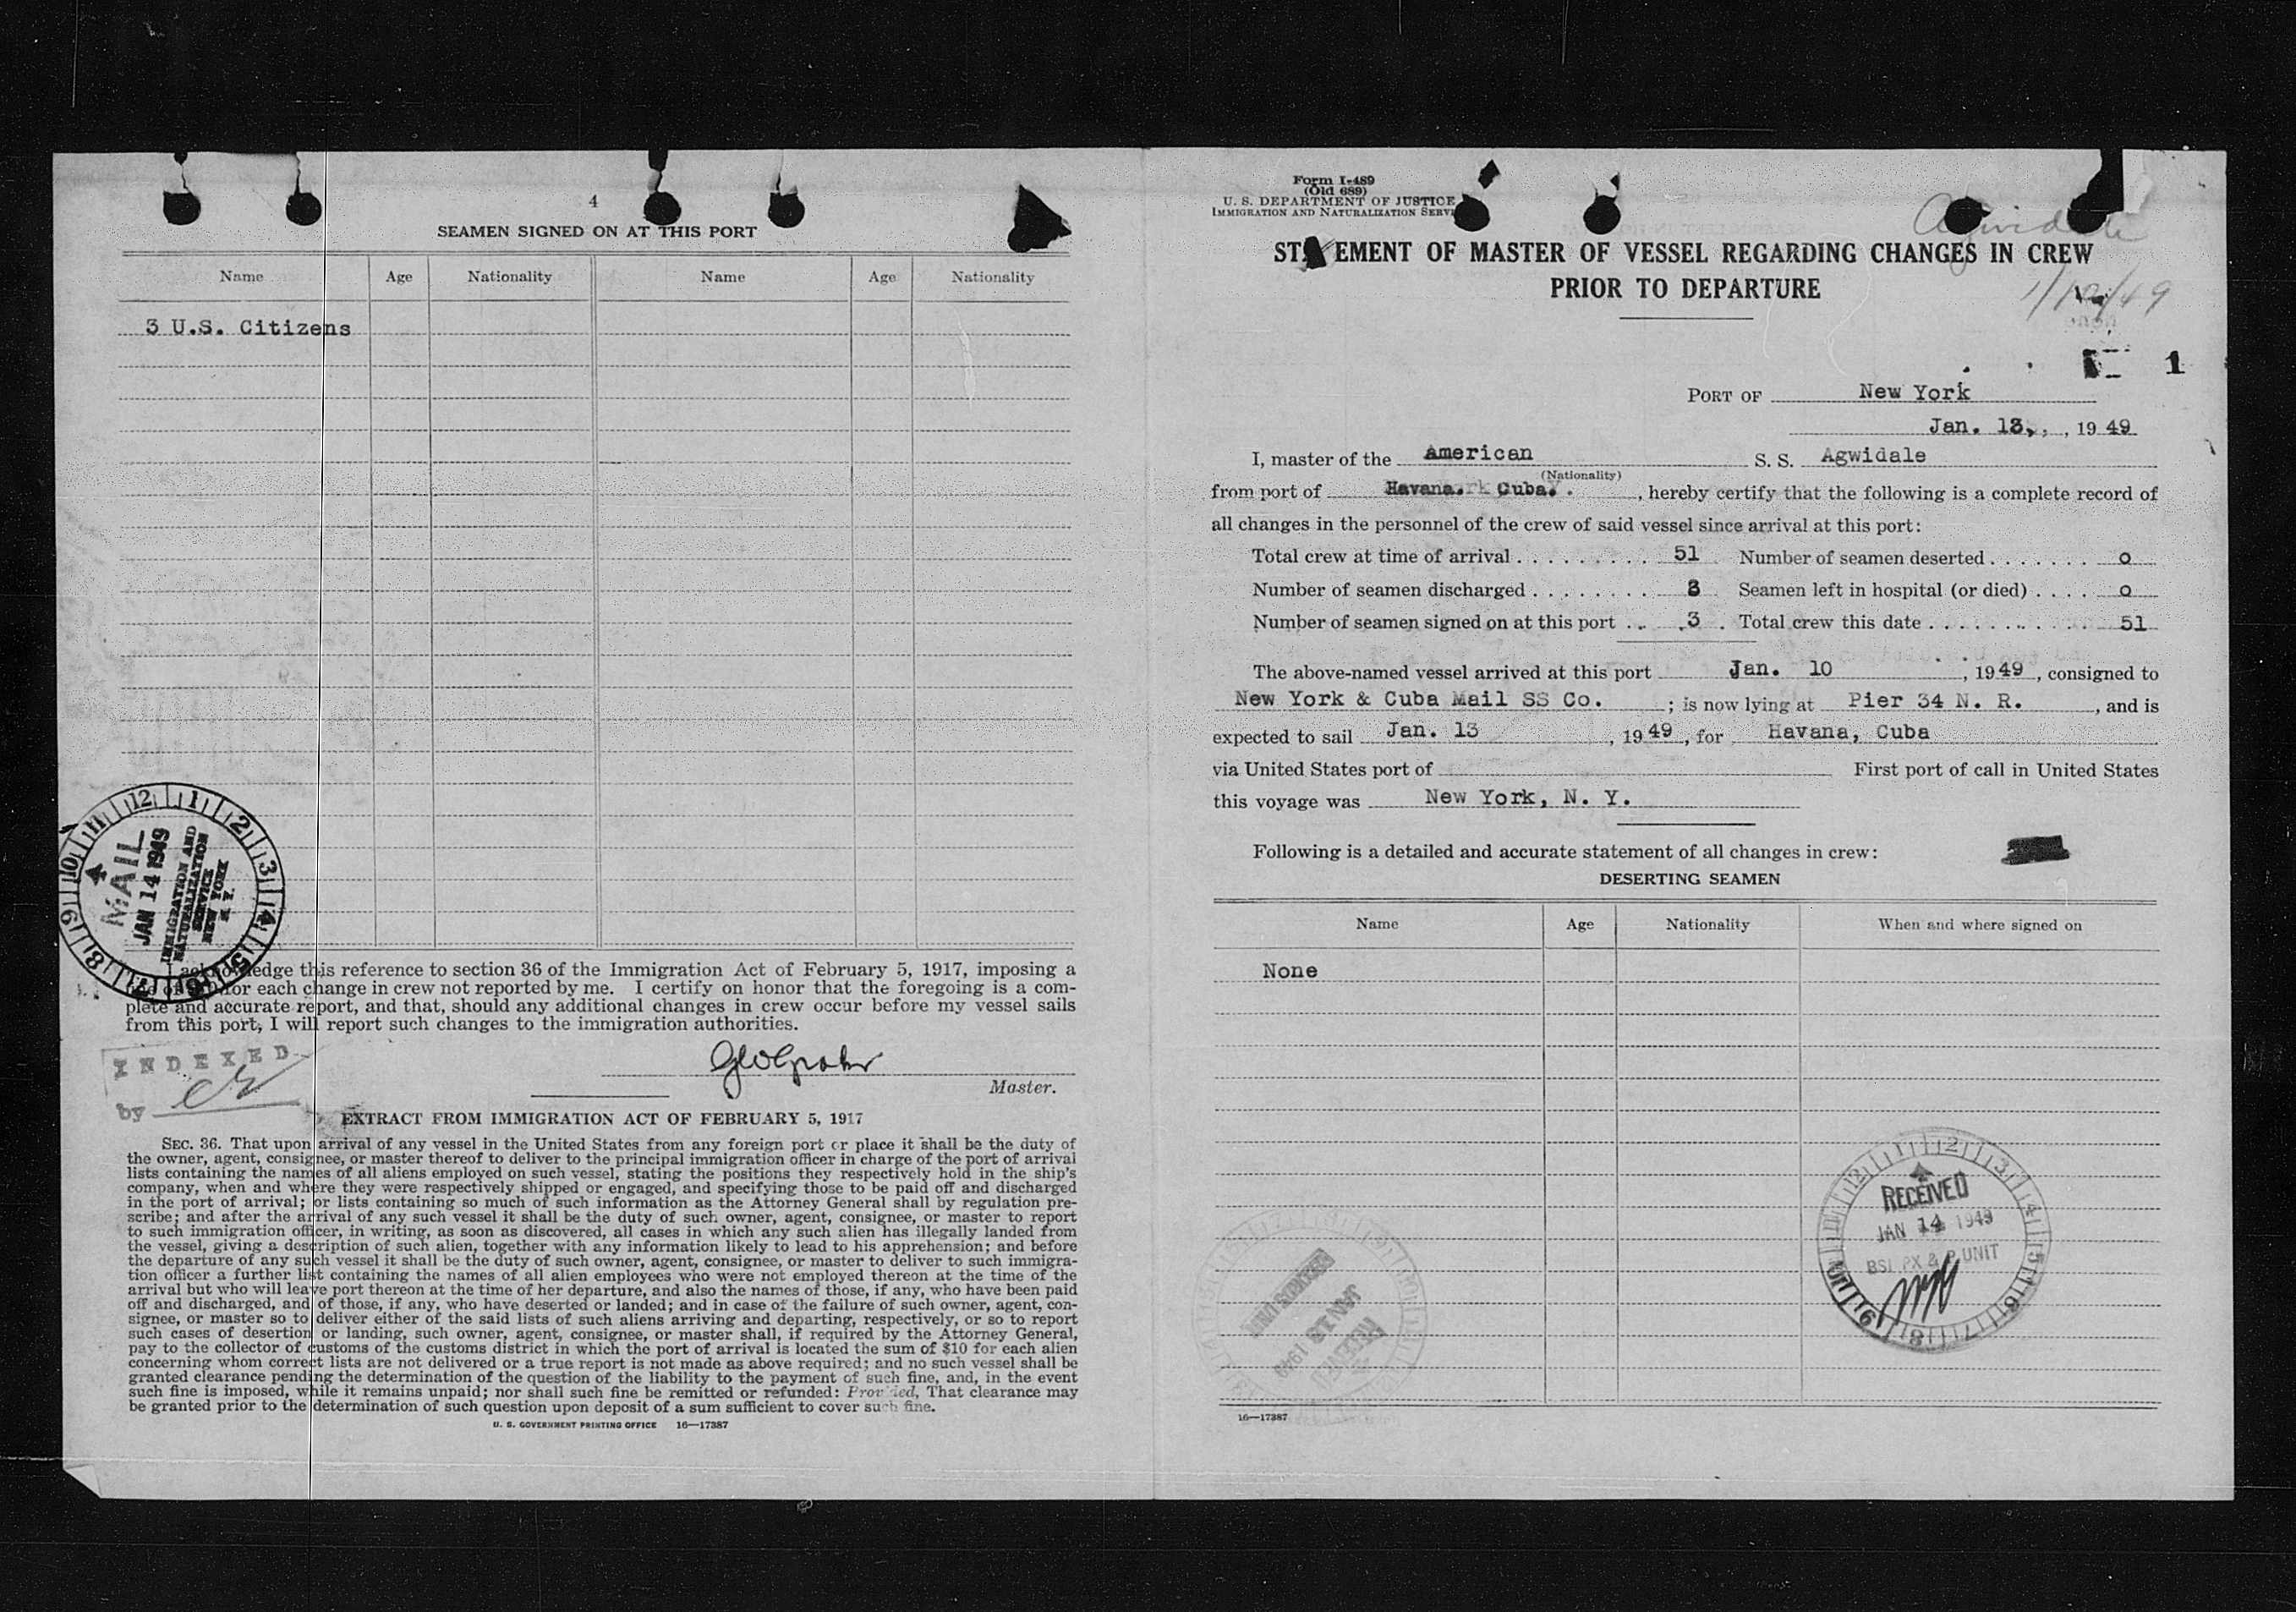 4
SEAMEN SIGNED ON AT THIS PORT
Name Age Nationality Name Age Nationality
3 U.S. Citizens
12 1 2 3 4 5 6 7 8 9 10 11
MAIL
JAN 14 1949
IMMIGRATION AND
NATURALIZATION
SERVICE
NEW YORK
N. Y.
edge this reference to section 36 of the Immigration Act of February 5, 1917, imposing a
for each change in crew not reported by me. I certify on honor that the foregoing is a com-
plete and accurate report, and that, should any additional changes in crew occur before my vessel sails
from this port, I will report such changes to the immigration authorities.
INDEXED
by
Master.
EXTRACT FROM IMMIGRATION ACT OF FEBRUARY 5, 1917
SEC. 36. That upon arrival of any vessel in the United States from any foreign port or place it shall be the duty of
the owner, agent, consignee, or master thereof to deliver to the principal immigration officer in charge of the port of arrival
lists containing the names of all aliens employed on such vessel, stating the positions they respectively hold in the ship's
company, when and where they were respectively shipped or engaged, and specifying those to be paid off and discharged
in the port of arrival; or lists containing so much of such information as the Attorney General shall by regulation pre-
scribe; and after the arrival of any such vessel it shall be the duty of such owner, agent, consignee, or master to report
to such immigration officer, in writing, as soon as discovered, all cases in which any such alien has illegally landed from
the vessel, giving a description of such alien, together with any information likely to lead to his apprehension; and before
the departure of any such vessel it shall be the duty of such owner, agent, consignee, or master to deliver to such immigra-
tion officer a further list containing the names of all alien employees who were not employed thereon at the time of the
arrival but who will leave port thereon at the time of her departure, and also the names of those, if any, who have been paid
off and discharged, and of those, if any, who have deserted or landed; and in case of the failure of such owner, agent, con-
signee, or master so to deliver either of the said lists of such aliens arriving and departing, respectively, or so to report
such cases of desertion or landing, such owner, agent, consignee, or master shall, if required by the Attorney General,
pay to the collector of customs of the customs district in which the port of arrival is located the sum of $10 for each alien
concerning whom correct lists are not delivered or a true report is not made as above required; and no such vessel shall be
granted clearance pending the determination of the question of the liability to the payment of such fine, and, in the event
such fine is imposed, while it remains unpaid; nor shall such fine be remitted or refunded: Provided, That clearance may
be granted prior to the determination of such question upon deposit of a sum sufficient to cover such fine.
U. S. GOVERNMENT PRINTING OFFICE 16—17387
Form I-489
(Old 689)
U. S. DEPARTMENT OF JUSTICE
IMMIGRATION AND NATURALIZATION SERV
Agwidale
STATEMENT OF MASTER OF VESSEL REGARDING CHANGES IN CREW
PRIOR TO DEPARTURE
1/10/49
1
PORT OF New York
Jan. 13, , 19 49
I, master of the American S. S. Agwidale
(Nationality)
from port of Havana. Cuba. , hereby certify that the following is a complete record of
all changes in the personnel of the crew of said vessel since arrival at this port:
Total crew at time of arrival . . . . . . . . . 51 Number of seamen deserted . . . . . . . 0
Number of seamen discharged . . . . . . . . 3 Seamen left in hospital (or died) . . . . 0
Number of seamen signed on at this port . . 3 Total crew this date . . . . . . . . . . . 51
The above-named vessel arrived at this port Jan. 10 , 19 49 , consigned to
New York & Cuba Mail SS Co. ; is now lying at Pier 34 N. R. , and is
expected to sail Jan. 13 , 19 49 , for Havana, Cuba
via United States port of First port of call in United States
this voyage was New York, N. Y.
Following is a detailed and accurate statement of all changes in crew:
DESERTING SEAMEN
Name Age Nationality When and where signed on
None
RECEIVED
JAN 14 1949
BSI PX & P UNIT
RECEIVED
JAN 1949
16—17387